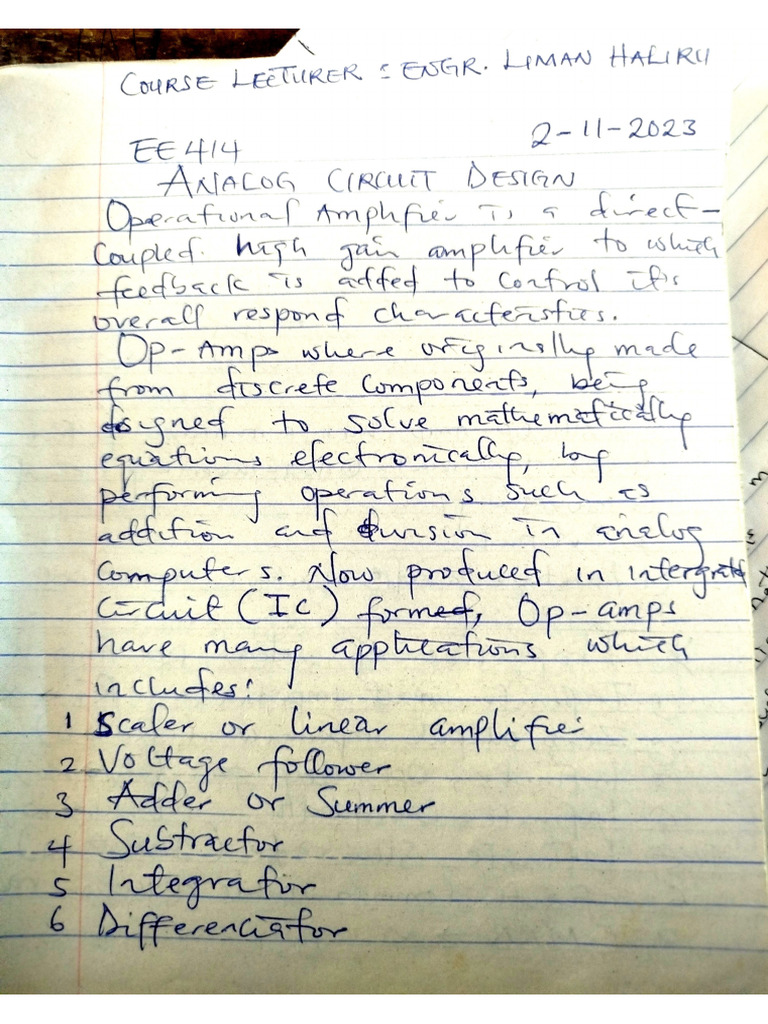 COURSE LECTURER : ENGR. LIMAN HALIRU
2-11-2023
EE414
ANALOG CIRCUIT DESIGN
Operational Amplifier is a direct-
Coupled. high gain amplifier to which
feedback is added to control its
overall respond characteristics.
Op-Amps where originally made
from discrete Components, being
designed to solve mathematically
equations electronically, by
performing operations such as
addition and division in analog
Computers. Now produced in intergrated
Circuit (IC) formed, Op-amps
have many applications which
includes:
1 Scaler or linear amplifier
2 Voltage follower
3 Adder or Summer
4 Subtractor
5 Integrator
6 Differenciator